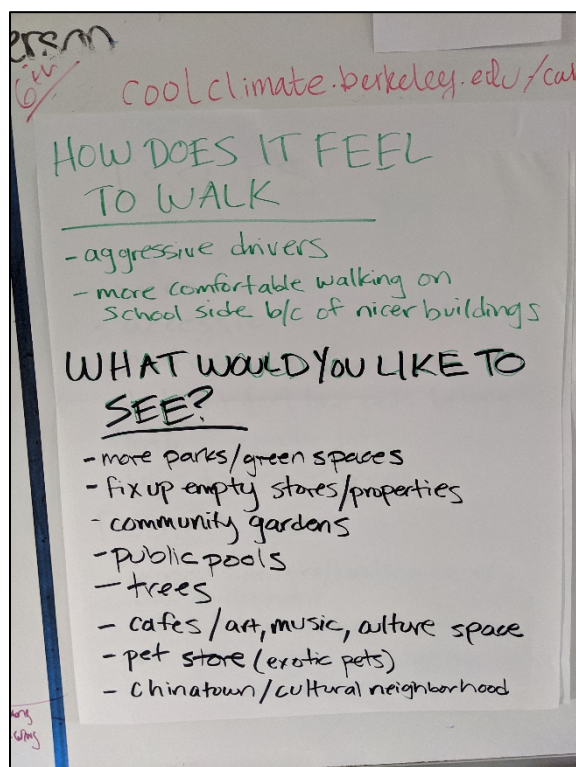 erson
coolclimate.berkeley.edu/cal
HOW DOES IT FEEL
TO WALK
- aggressive drivers
- more comfortable walking on
school side b/c of nicer buildings
WHAT WOULD YOU LIKE TO
SEE?
- more parks/green spaces
- fix up empty stores/properties
- community gardens
- public pools
- trees
- cafes/art, music, culture space
- pet store (exotic pets)
- Chinatown/cultural neighborhood